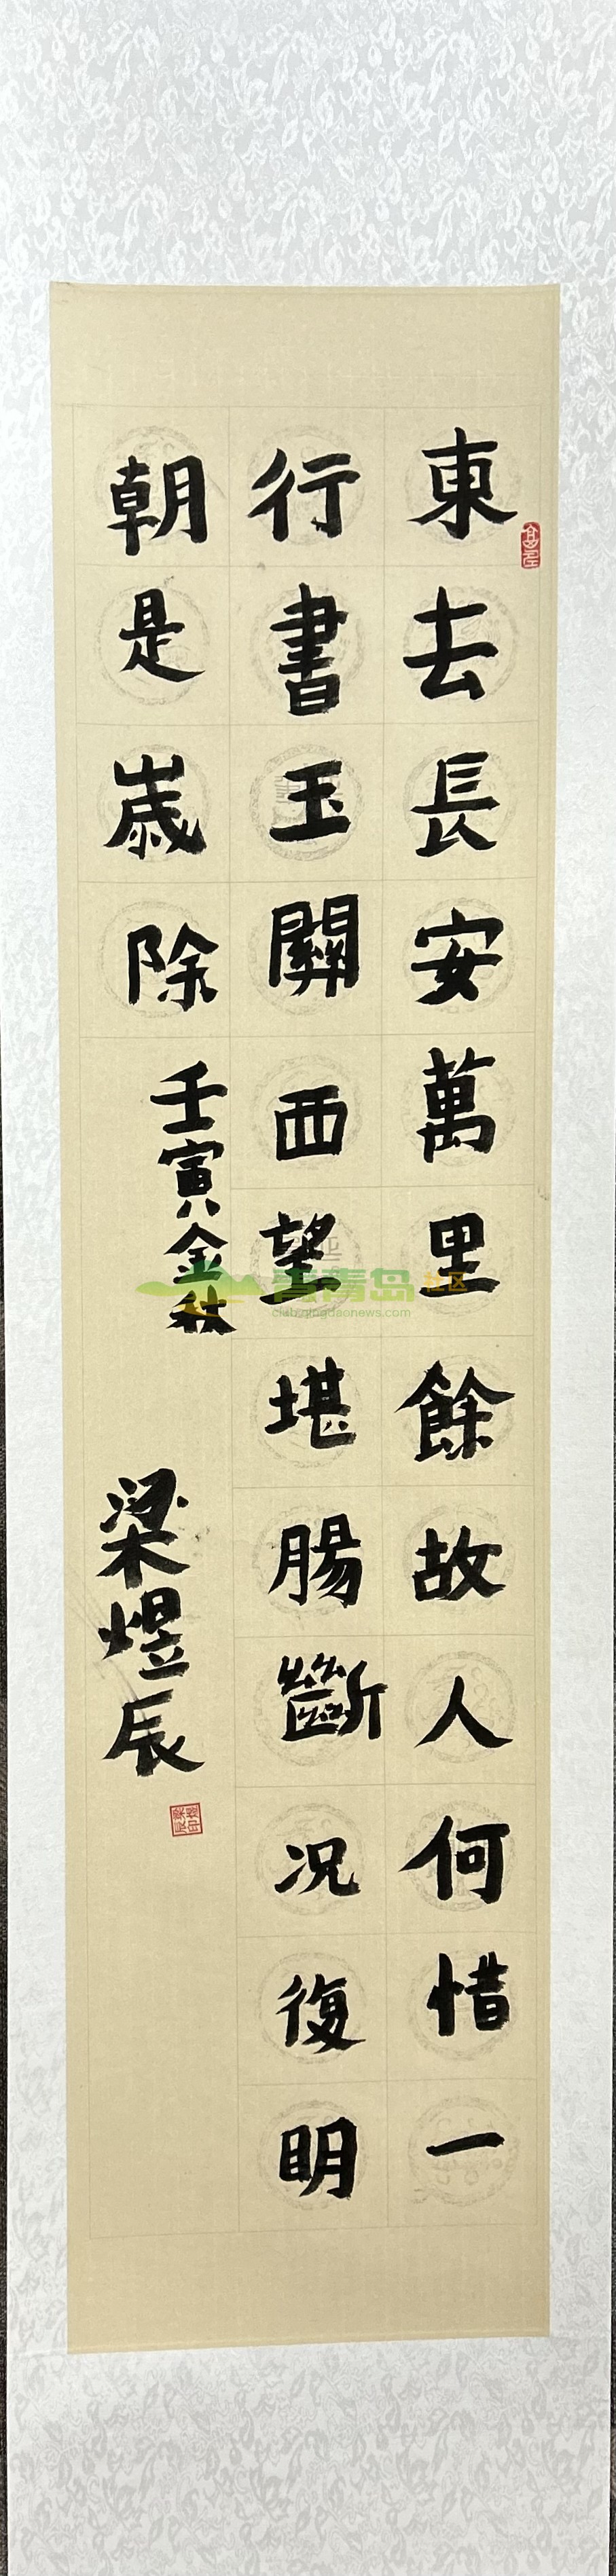 東去長安萬里餘故人何惜一
行書玉關西望堪腸斷況復明
朝是歲除
壬寅金秋
梁煜辰
青青岛社区
club.qingdaonews.com